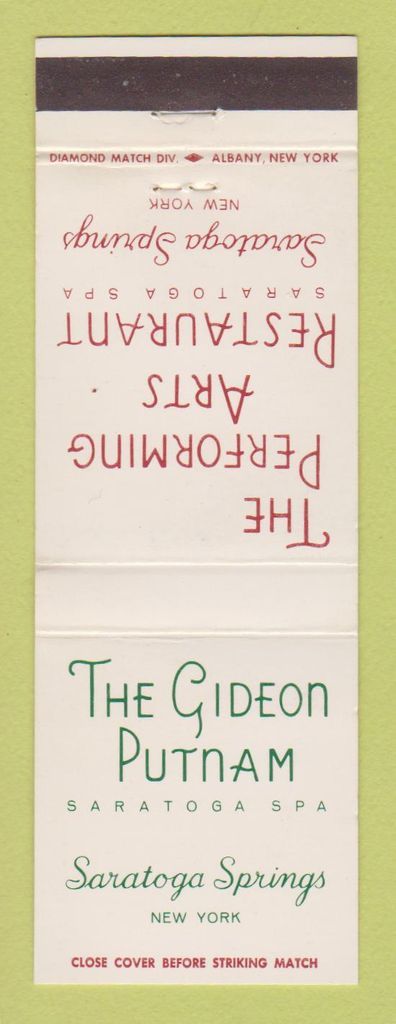 DIAMOND MATCH DIV. ALBANY, NEW YORK
THE
PERFORMING
ARTS
RESTAURANT
SARATOGA SPA
Saratoga Springs
NEW YORK
THE GIDEON
PUTNAM
SARATOGA SPA
Saratoga Springs
NEW YORK
CLOSE COVER BEFORE STRIKING MATCH